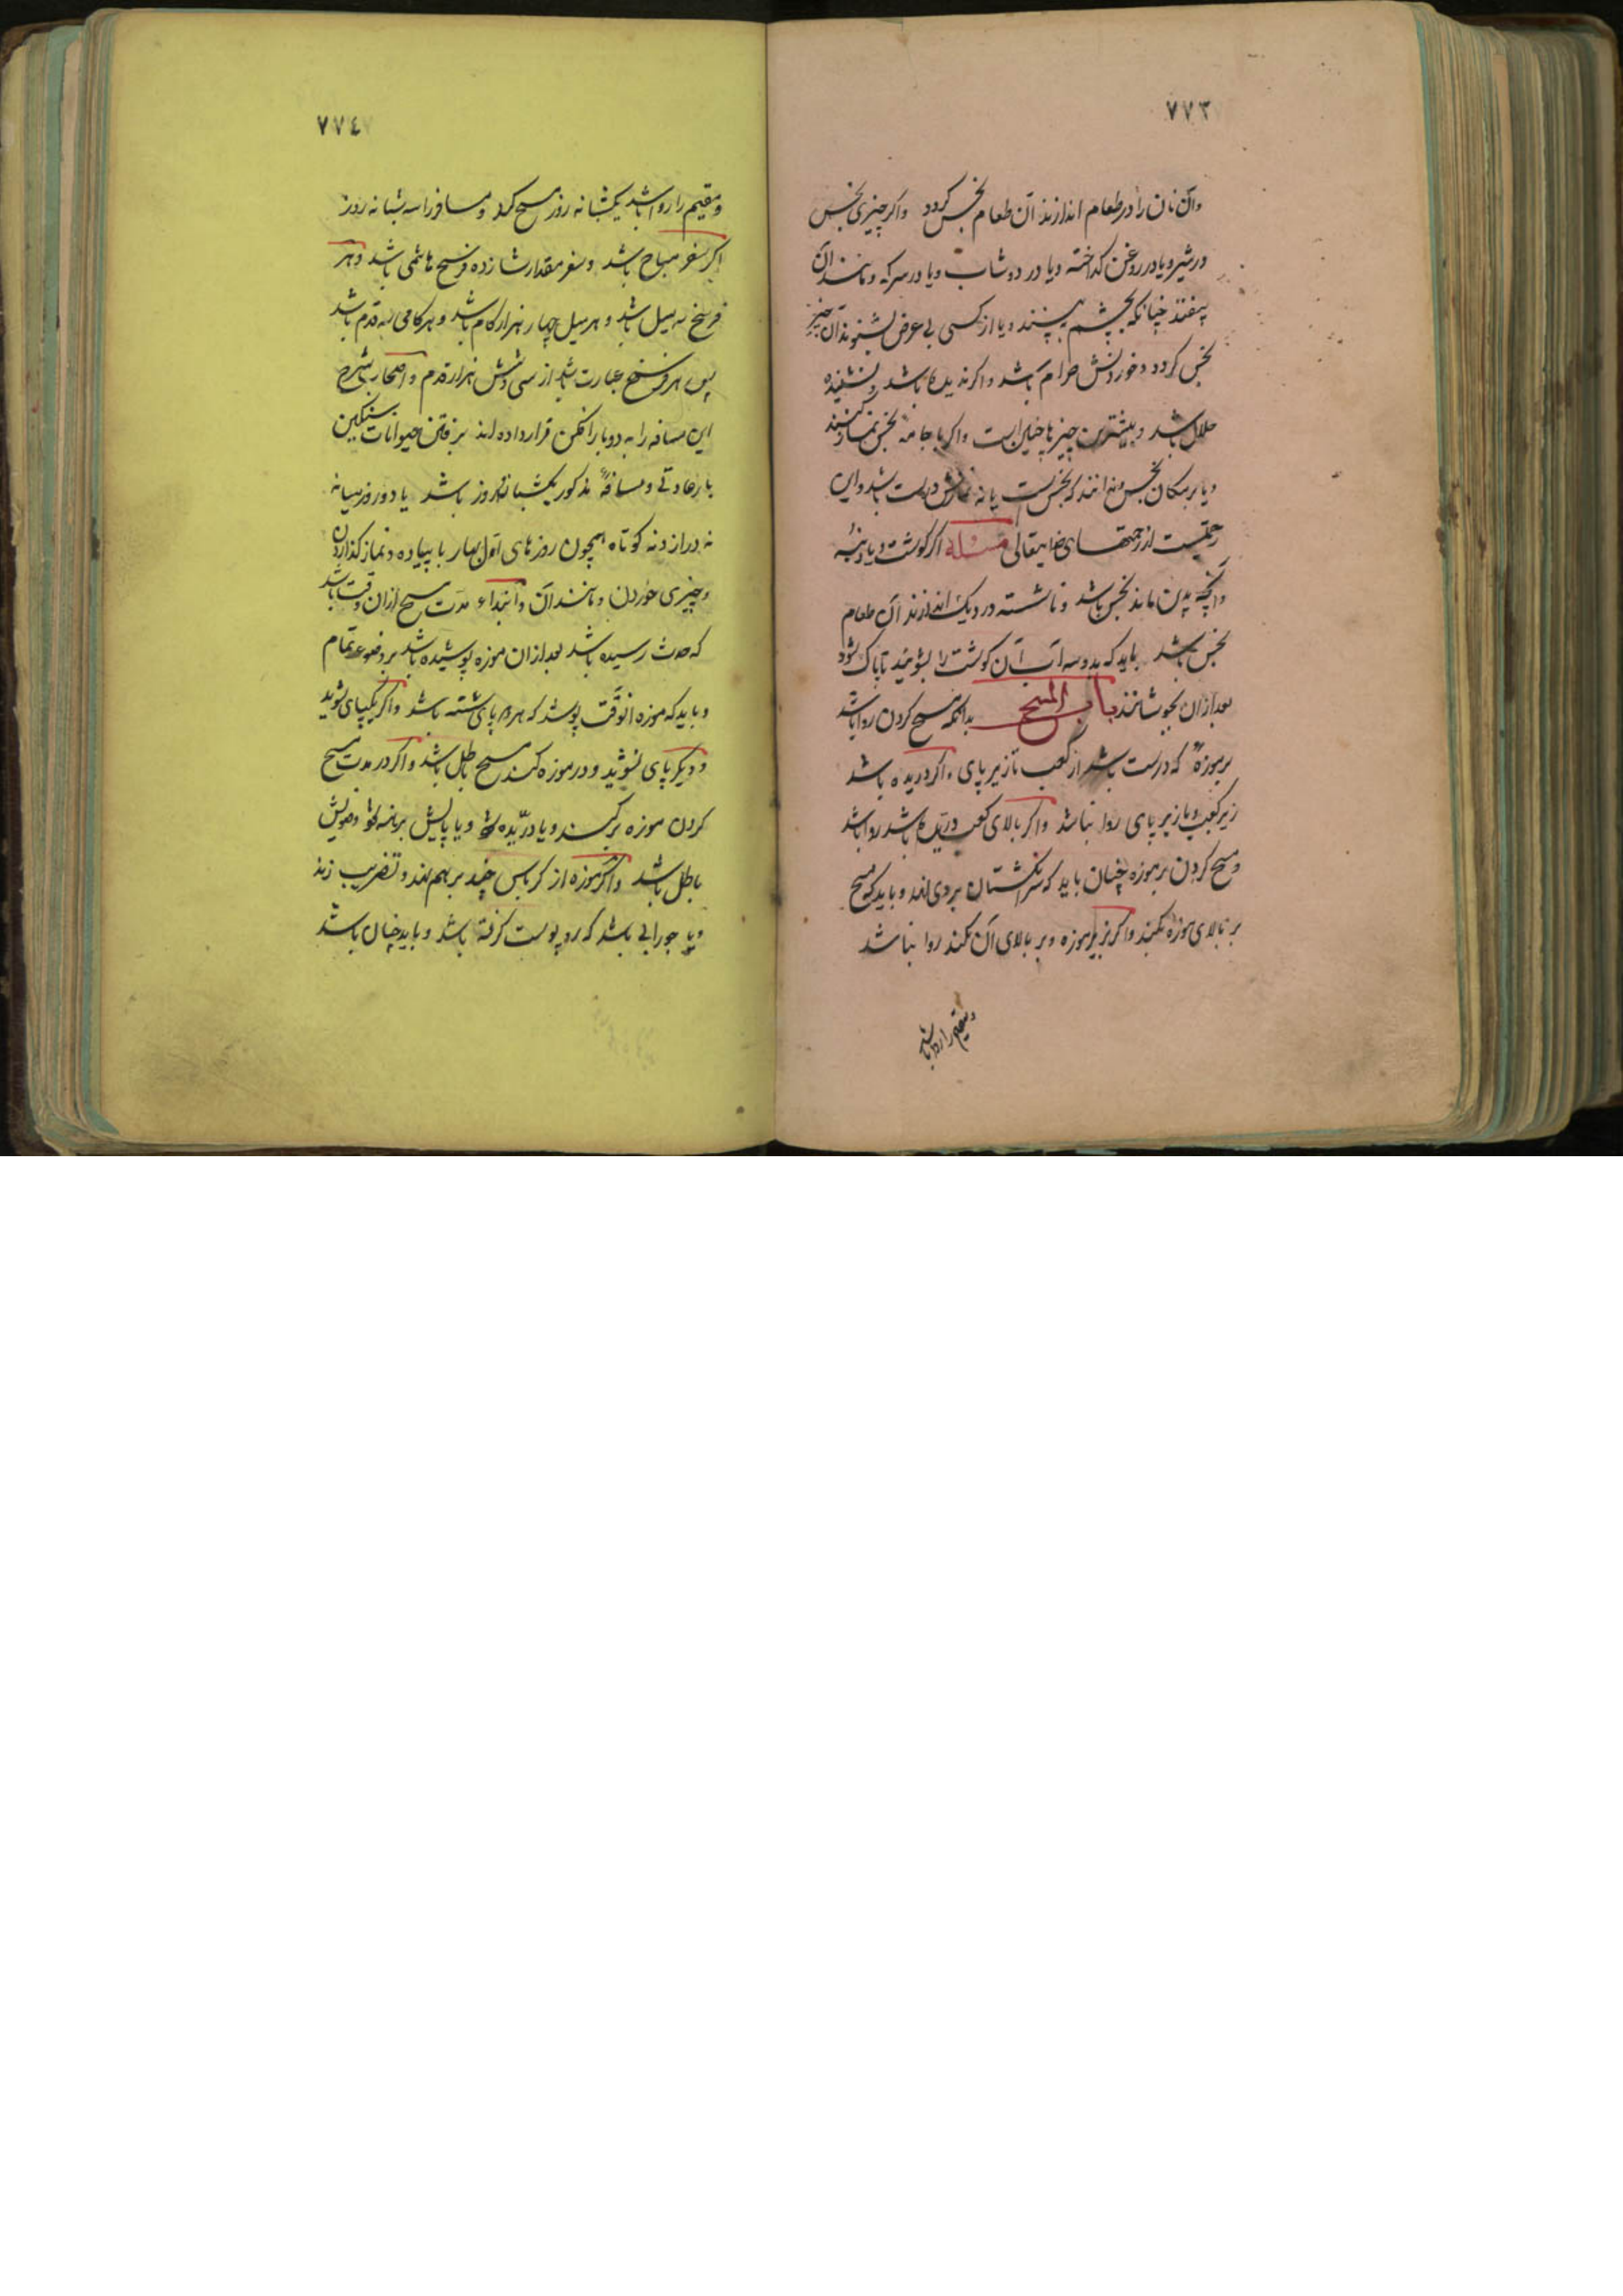 ٧٧٣
وآن نان را در طعام اندازند آن طعام نجس کردد واکر چیزی نجس
در شیر ویا در روغن کداخته ویا در دوشاب ویا در سرکه ومانند آن
بیفتد چنانکه بچشم ببینند ویا از کسی بی عرض بشنوند آن چیز
نجس کردد وخوردنش حرام باشد واکر ندیده باشد ونشنیده
حلال باشد وبیشترین چیزها چنین است واکر با جامه نجس نماز کنند
ویا بر مکان نجس وندانند که نجس است یا نه نمازش درست باشد واین
رحمتیست از رحمتهای خدایتعالی مسئله اکر کوشت ویا دنبه
وآنچه بدین ماند نجس باشد وناشسته در دیک اندازند آن طعام
نجس باشد باید که بدو سه آب آن کوشت را بشویند تا پاک شود
بعد ازان بجوشانند باب المسح بدانکه مسح کردن روا باشد
بر موزهٔ که درست باشد از کعب تا زیر پای واکر دریده باشد
زیر کعب ویا زیر پای روا نباشد واکر بالای کعب دریده باشد روا باشد
ومسح کردن بر موزه چنان باید که سر انکشتان بروی نهد وباید که مسح
بر بالای موزه کند واکر بزیر موزه وبر بالای آن نکند روا نباشد
ومقیم را روا باشد
٧٧٤
ومقیم را روا باشد یکشبانه روز مسح کرد ومسافر را سه شبانه روز
اکر سفر مباح باشد وسفر مقدار شانزده فرسخ هاشمی باشد وهر
فرسخ سه میل باشد وهر میل چهار هزار کام باشد وهر کامی سه قدم باشد
پس هر فرسخ عبارت باشد از سی وشش هزار قدم واصحاب شرح
این مسافه را به دو بار افکن قرار داده اند برفتن حیوانات سنکین
بار عادتی ومسافهٔ مذکور یکشبانه روز باشد یا دو روز میانه
نه دراز ونه کوتاه همچون روزهای اول بهار با پیاده ونماز کذاردن
وچیزی خوردن ومانند آن وابتداء مدت مسح ازان وقت باشد
که حدث رسیده باشد بعد ازان موزه پوشیده باشد بر وضوء تمام
وباید که موزه انوقت پوشد که هر دو پای شسته باشد واکر یکپای شوید
ودیکر پای نشوید ودر موزه کند مسح باطل باشد واکر در مدت مسح
کردن موزه برکند ویا دریده شود ویا پایش برهنه شود وضویش
باطل باشد واکر موزه از کرباس چند بر هم نهد وتضریب زند
ویا جورابی باشد که رو پوست کرفته باشد وباید چنان باشد